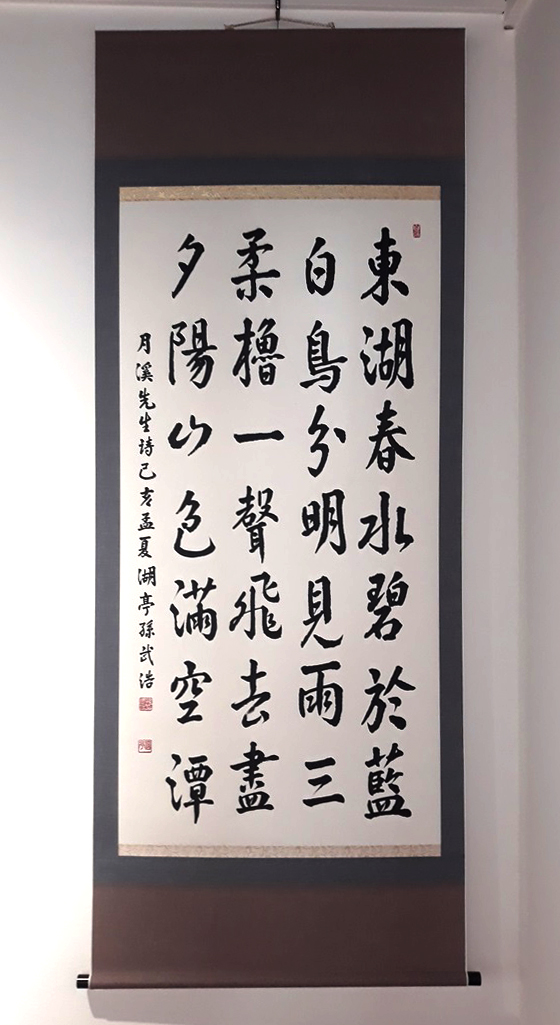 東湖春水碧於藍
白鳥分明見兩三
柔櫓一聲飛去盡
夕陽山色滿空潭
月溪先生詩己亥孟夏湖亭孫武浩